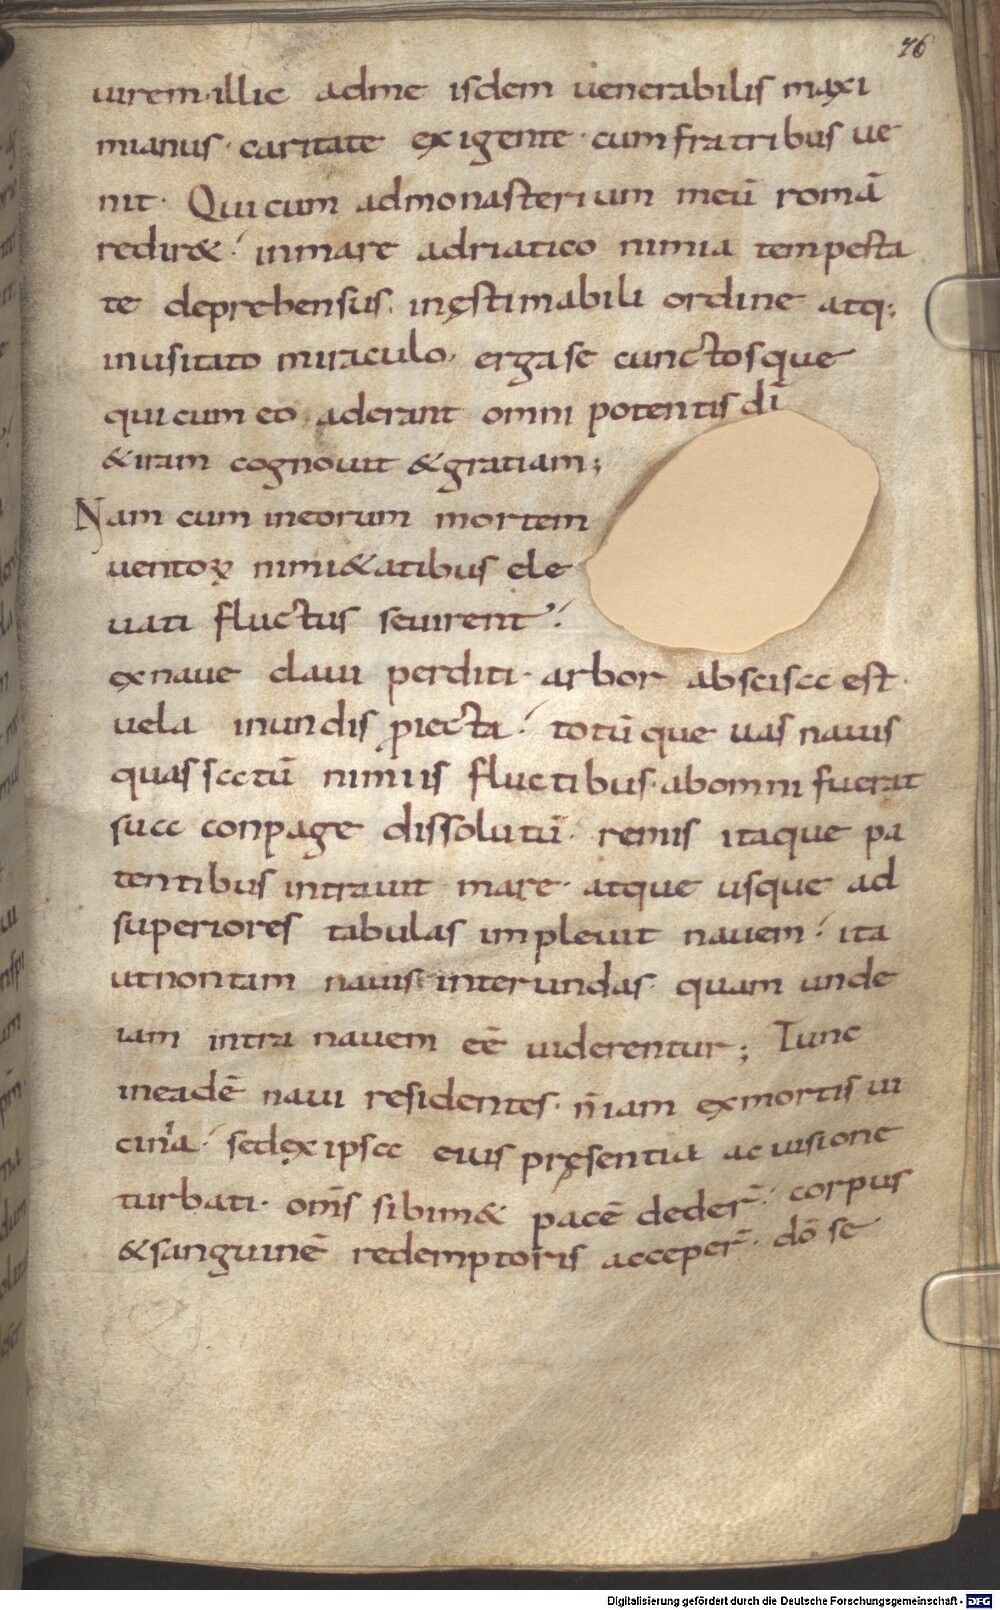 76
uirem·illic adme isdem uenerabilis maxi
mianus· caritate exigente· cumfratribus ue
nit· Quicum admonasterium meū romā
redir&· inmare adriatico nimia tempesta
te deprehensus· inęstimabili ordine atq;
inusitato miraculo· ergase cunctosque
quicum eo aderant omni potentis dī
&iram cognouit &gratiam;
Nam cum ineorum mortem
uentoꝝ nimi&atibus ele
uati fluctus seuirent·
exnaue claui perditi· arbor abscisa est·
uela inundis ꝓiecta· totūque uas nauis
quassatū nimiis fluctibus· abomni fuerat
sua conpage dissolutū· remis itaque pa
tentibus intrauit mare· atque usque ad
superiores tabulas impleuit nauem· ita
utnontam nauis interundas· quam unde
iam intra nauem eē uiderentur; Tunc
ineadē naui residentes· ñiam exmortis ui
cina· sedexipsa eius pręsentia ac uisione
turbati· om̄s sibim& pacē deder̄· corpus
&sanguinē redemptoris acceper̄· dō se
Digitalisierung gefördert durch die Deutsche Forschungsgemeinschaft - DFG